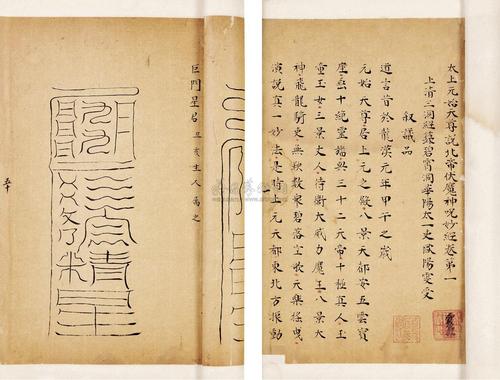 太上元始天尊說北帝伏魔神咒妙經卷第一
上清三洞經籙碧霄洞華陽太一吏歐陽雯受
叙議品
道言昔於龍漢元年甲午之歲
元始天尊居上元之殿八景天都安五雲寶
座垂十絕靈旛與三十二天帝十極真人玉
童玉女三景丈人侍衛大威力魔王八景大
神飛龍騎吏無鞅數衆碧落空歌元樂搖曳
演說真一妙法是時上元天都東北方振動
巨門星君 丑亥生人屬之